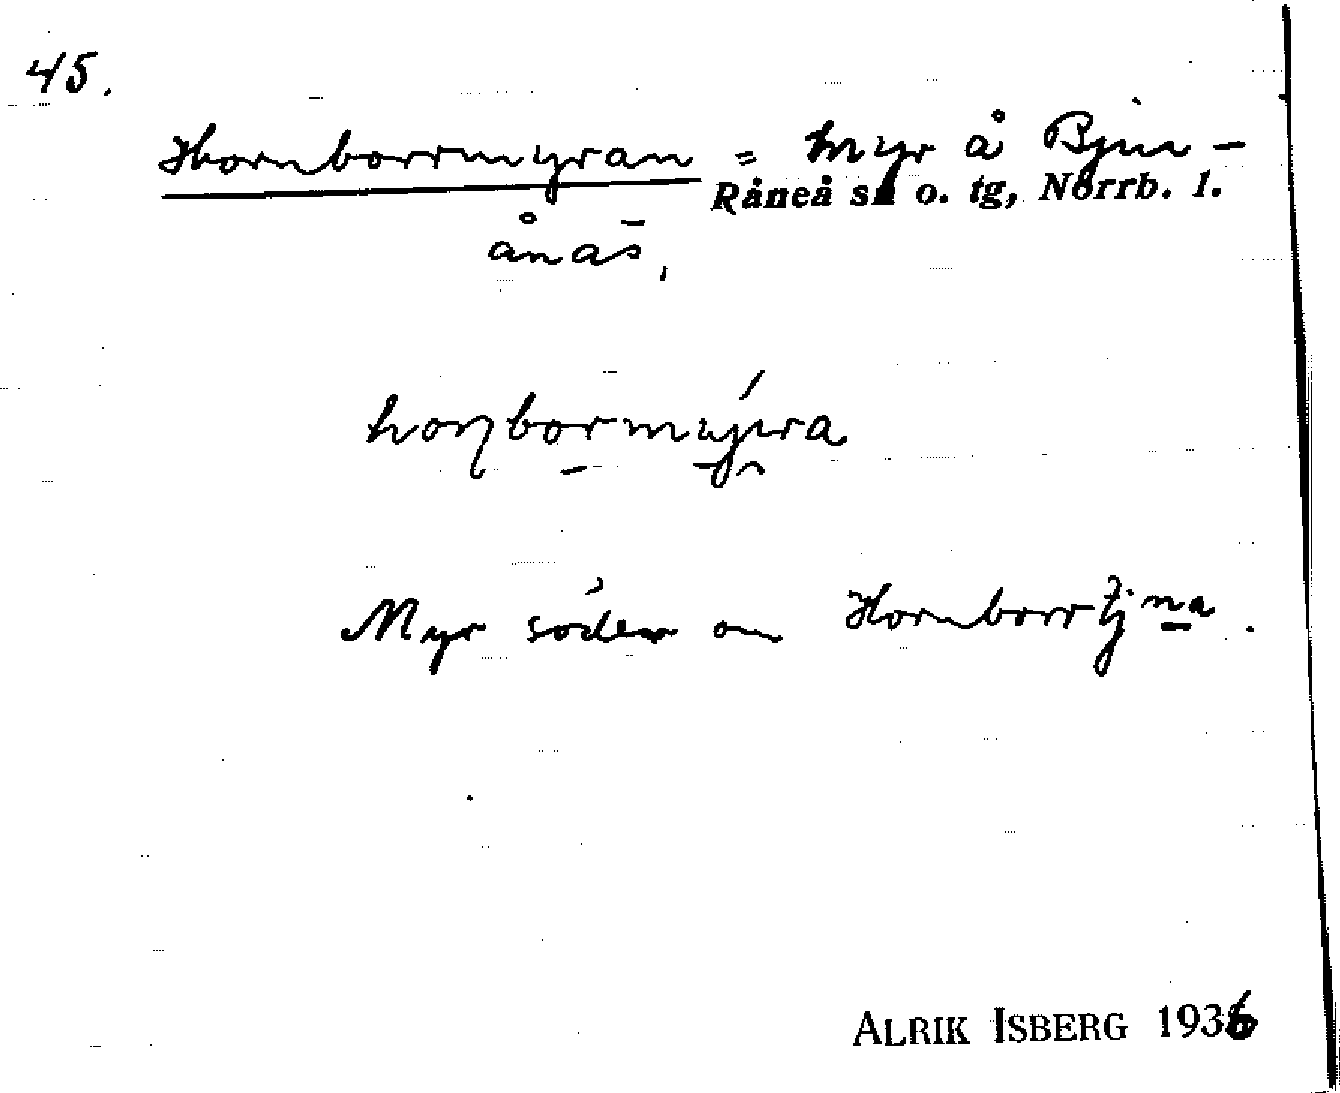 45.
Hornborrmyran = Myr å Bjur-
Råneå sn o. tg, Norrb. l.
ånäs,
Myr söder om Hornborrtjna.
ALRIK ISBERG 1936